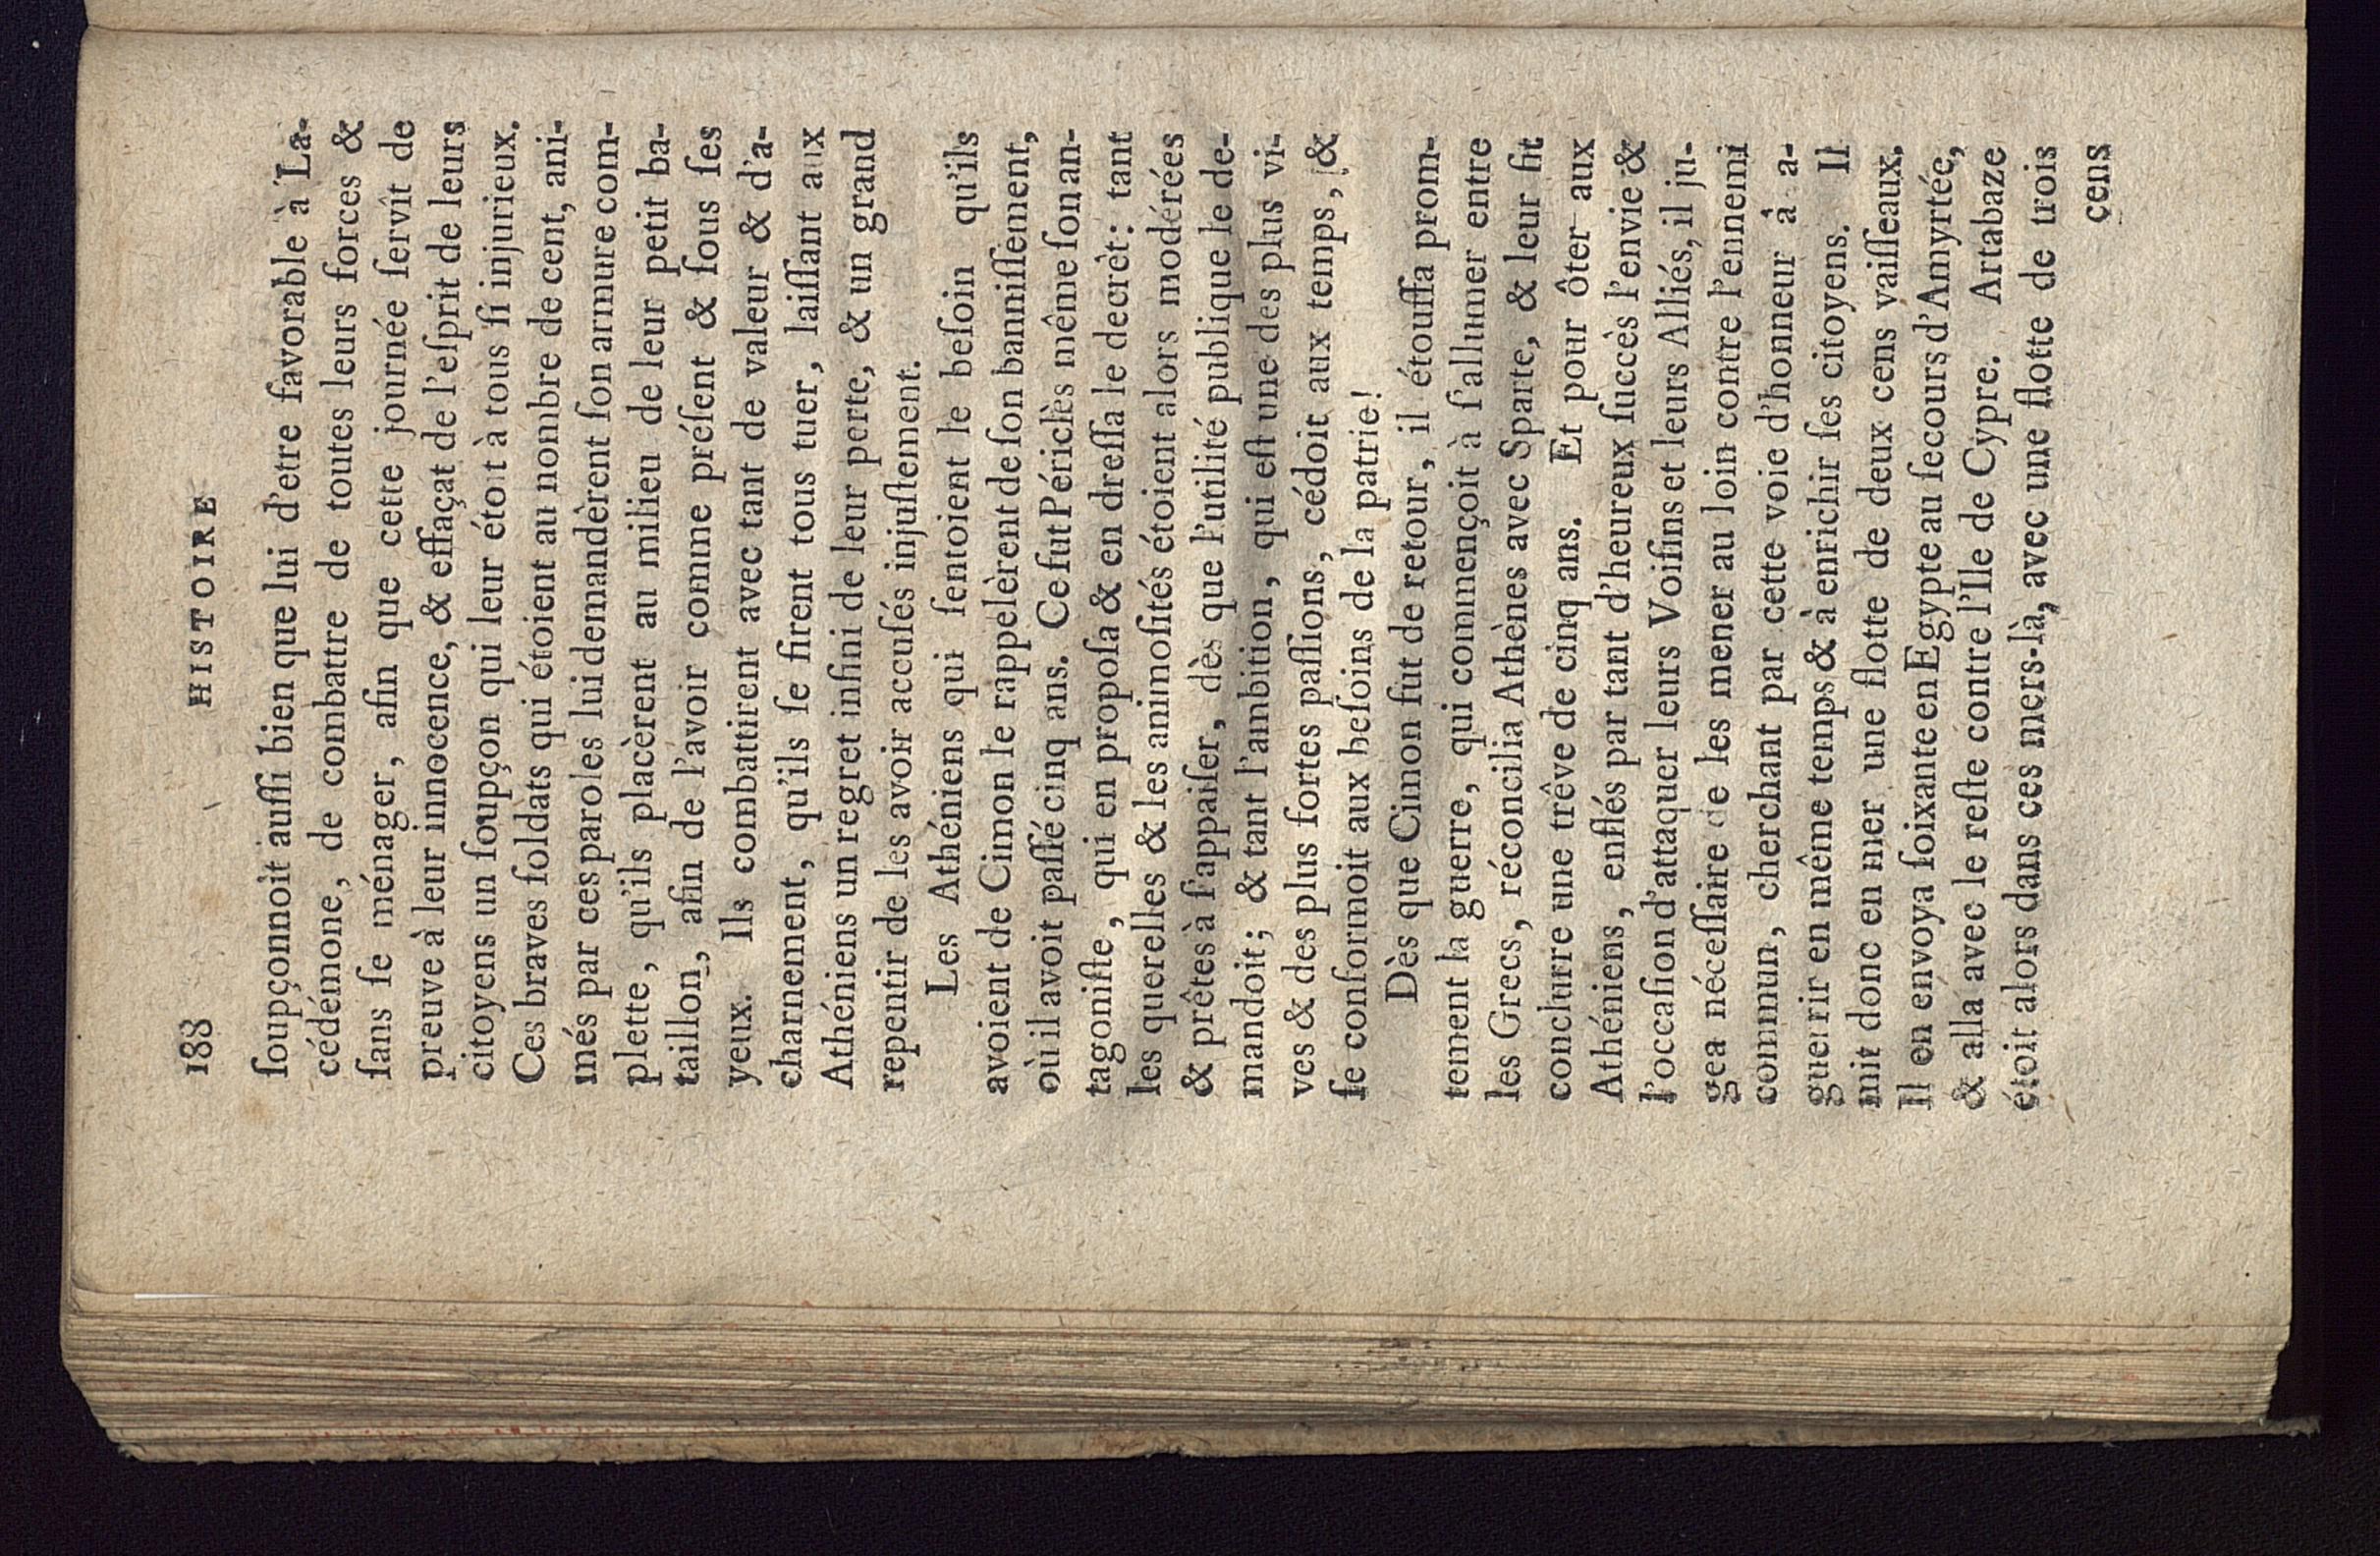 188 HISTOIRE
ſoupçonnoit auſſi bien que lui d'etre favorable à La-
cédémone, de combattre de toutes leurs forces &
ſans ſe ménager, afin que cette journée ſervît de
preuve à leur innocence, & effaçat de l'eſprit de leurs
citoyens un ſoupçon qui leur étoit à tous ſi injurieux.
Ces braves ſoldats qui étoient au nombre de cent, ani-
més par ces paroles lui demandèrent ſon armure com-
plette, qu'ils placèrent au milieu de leur petit ba-
taillon, afin de l'avoir comme préſent & ſous ſes
yeux. Ils combattirent avec tant de valeur & d'a-
charnement, qu'ils ſe firent tous tuer, laiſſant aux
Athéniens un regret infini de leur perte, & un grand
repentir de les avoir accuſés injuſtement.
Les Athéniens qui ſentoient le beſoin qu'ils
avoient de Cimon le rappelèrent de ſon banniſſement,
où il avoit paſſé cinq ans. Ce fut Périclès même ſon an-
tagoniſte, qui en propoſa & en dreſſa le decrèt: tant
les querelles & les animoſités étoient alors modérées
& prêtes à ſ'appaiſer, dès que l'utilité publique le de-
mandoit; & tant l'ambition, qui eſt une des plus vi-
ves & des plus fortes paſſions, cédoit aux temps, &
ſe conformoit aux beſoins de la patrie!
Dès que Cimon fut de retour, il étouffa prom-
tement la guerre, qui commençoit à ſ'allumer entre
les Grecs, réconcilia Athènes avec Sparte, & leur fit
conclurre une trêve de cinq ans. Et pour ôter aux
Athéniens, enflés par tant d'heureux ſuccès l'envie &
l'occaſion d'attaquer leurs Voiſins et leurs Alliés, il ju-
gea néceſſaire de les mener au loin contre l'ennemi
commun, cherchant par cette voie d'honneur à a-
guerrir en même temps & à enrichir ſes citoyens. Il
mit donc en mer une flotte de deux cens vaiſſeaux.
Il en envoya ſoixante en Egypte au ſecours d'Amyrtée,
& alla avec le reſte contre l'Ile de Cypre. Artabaze
étoit alors dans ces mers-là, avec une flotte de trois
cens